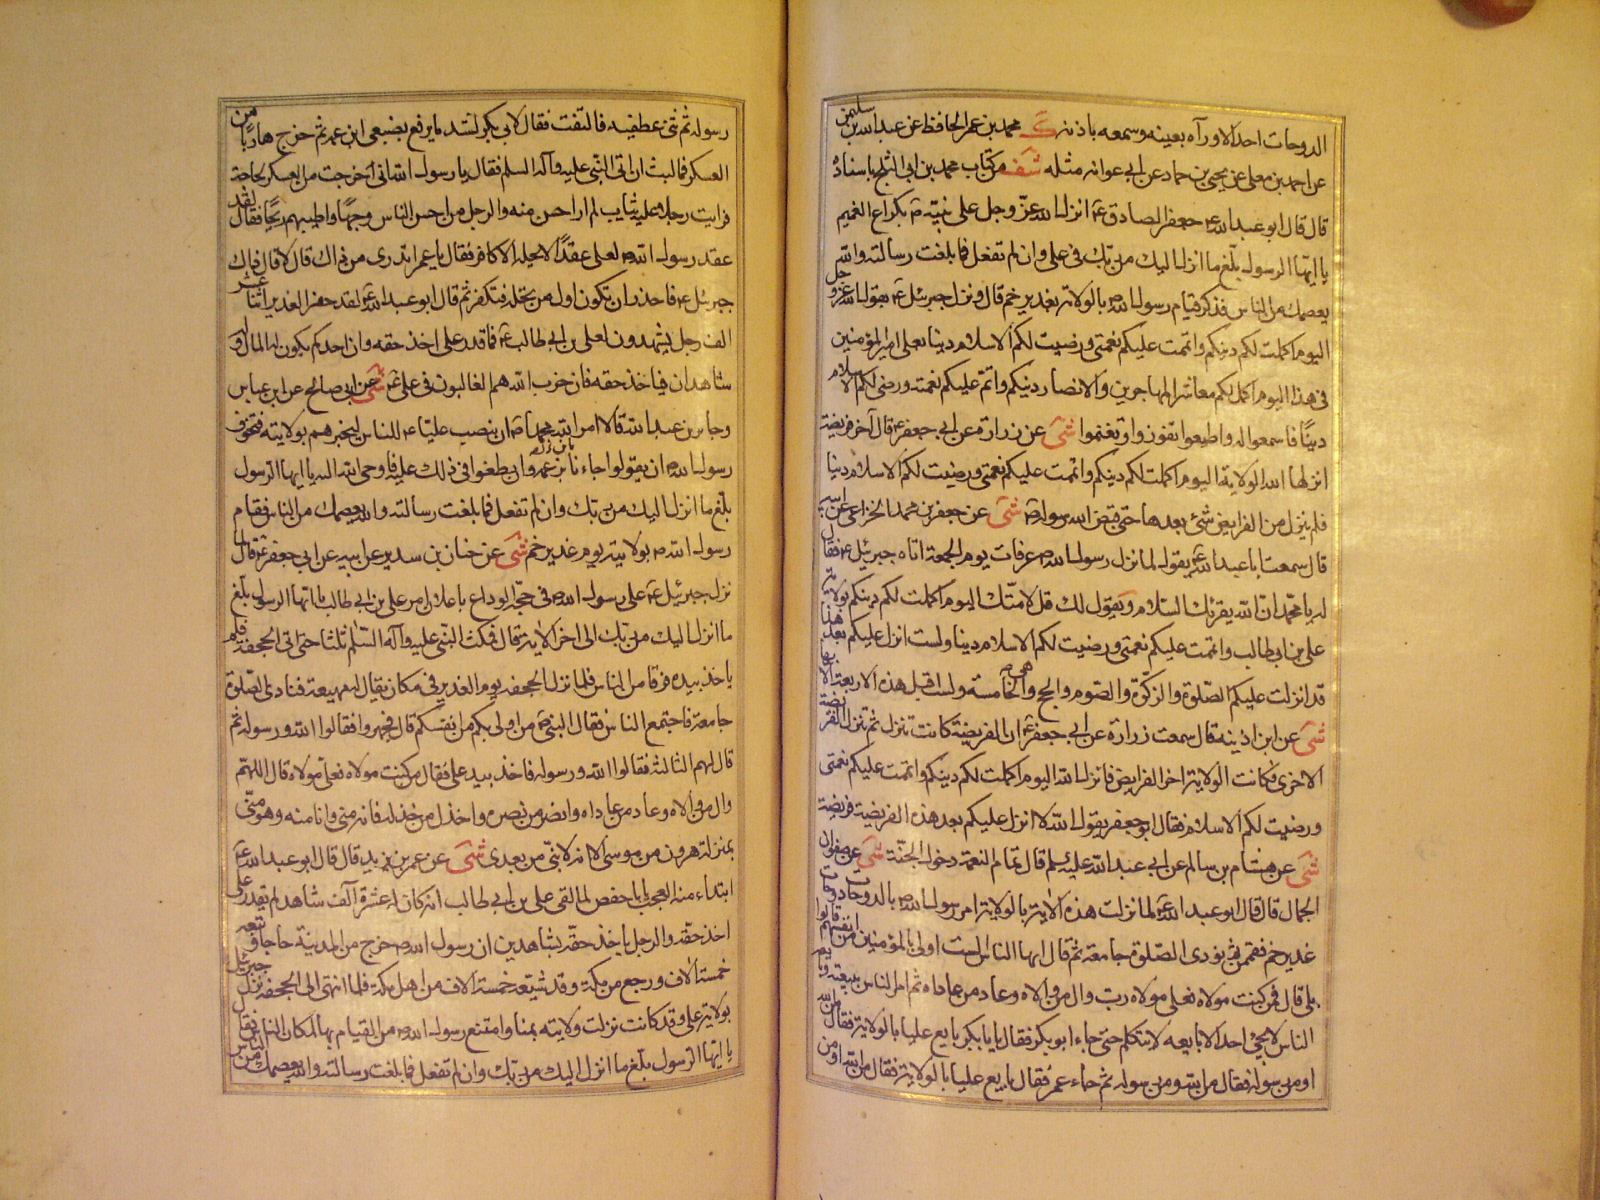 الدوحات احد الا ورآه بعينه وسمعه باذنه كنز محمد بن عمر الحافظ عن عبدالله بن سليمن
عن احمد بن معلى عن يحيى بن حماد عن ابي عوانه مثله شف من كتاب محمد بن ابي الثلج باسناده
قال قال ابو عبد الله ع جعفر الصادق ع انزل الله عز وجل على نبيه ص بكراع الغميم
يا ايها الرسول بلغ ما انزل اليك من ربك فى على وان لم تفعل فما بلغت رسالته والله
يعصمك من الناس فذكر قيام رسول الله ص بالولاية بغدير خم قال ونزل جبرئيل ع بقول الله عز وجل
اليوم اكملت لكم دينكم واتممت عليكم نعمتى ورضيت لكم الاسلام دينا بعلى امير المؤمنين
فى هذا اليوم اكمل لكم معاشر المهاجرين والانصار دينكم واتم عليكم نعمته ورضى لكم الاسلام
دينًا فاسمعوا له واطيعوا تفوزوا وتغنموا شى عن زرارة عن ابى جعفر ع قال آخر فريضة
انزلها الله الولاية اليوم اكملت لكم دينكم واتممت عليكم نعمتى ورضيت لكم الاسلام دينا
فلم ينزل من الفرايض شئ بعدها حتى قبض الله رسوله ص شى عن جعفر بن محمد الخزاعى عن ابيه
قال سمعت ابا عبد الله ع يقول لما نزل رسول الله ص عرفات يوم الجمعة اتاه جبرئيل ع فقال
له يا محمد ان الله يقرئك السلام ويقول لك قل لامتك اليوم اكملت لكم دينكم بولاية
على بن ابيطالب واتممت عليكم نعمتى ورضيت لكم الاسلام دينا ولست انزل عليكم بعد هذا
قد انزلت عليكم الصلوة والزكوة والصوم والحج وهى الخامسة ولست اقبل هذه الاربعة الا بها
شى عن ابن اذينه قال سمعت زرارة عن ابى جعفر ع ان الفريضة كانت تنزل ثم تنزل الفريضة
الاخرى فكانت الولاية اخر الفرايض فانزل الله اليوم اكملت لكم دينكم واتممت عليكم نعمتى
ورضيت لكم الاسلام فقال ابو جعفر يقول الله لا انزل عليكم بعد هذه الفريضة فريضة
شى عن هشام بن سالم عن ابى عبد الله عليه السلم قال تمام النعمة دخول الجنة شى عن صفوان
الجمال قال قال ابو عبد الله ع لما نزلت هذه الآية بالولاية امر رسول الله ص بالدوحات دوحات
غدير خم فقممن ثم نودى الصلوة جامعة ثم قال ايها الناس الست اولى بالمؤمنين من انفسهم قالوا
بلى قال فمن كنت مولاه فعلى مولاه رب وال من والاه وعاد من عاداه ثم امر الناس ببيعته وبايعه
الناس لا يجئ احد الا بايعه لا يتكلم حتى جاء ابو بكر فقال يا با بكر بايع عليا بالولاية فقال من الله
او من رسوله فقال من الله ومن رسوله ثم جاء عمر فقال بايع عليا بالولاية فقال من الله او من
رسوله ثم ثنى عطفيه فالتفت فقال لابى بكر لشد ما يرفع بضبعى ابن عمه ثم خرج هاربًا من
العسكر فما لبث ان اتى النبى عليه وآله السلم فقال يا رسول الله انى خرجت من العسكر لحاجة
فرايت رجلا عليه ثياب لم ار احسن منه والرجل من احسن الناس وجهًا واطيبهم ريحًا فقال لقد
عقد رسول الله ص لعلى عقدًا لا يحله الا كافر فقال يا عمر اتدرى من ذاك قال لا قال ذاك
جبرئيل ع فاحذر ان تكون اول من يحله فتكفر ثم قال ابو عبد الله ع لقد حضر الغدير اثنا عشر
الف رجل يشهدون لعلى بن ابى طالب ع فما قدر على اخذ حقه وان احدكم يكون له المال وله
شاهدان فياخذ حقه فان حزب الله هم الغالبون فى على ع شى عن ابى صالح عن ابن عباس
وجابر بن عبد الله قالا امر الله محمدا ص ان ينصب عليا ع للناس ليخبرهم بولايته فتخوف
رسول الله ص ان يقولوا حابى ابن عمه وان يطغوا فى ذلك عليه فاوحى الله اليه يا ايها الرسول
بلغ ما انزل اليك من ربك وان لم تفعل فما بلغت رسالته والله يعصمك من الناس فقام
رسول الله ص بولايته يوم غدير خم شى عن حنان بن سدير عن ابيه عن ابى جعفر ع قال
نزل جبرئيل ع على رسول الله ص فى حجة الوداع باعلان امر على بن ابى طالب يا ايها الرسول بلغ
ما انزل اليك من ربك الى اخر الاية قال فمكث النبى عليه وآله السلم ثلثا حتى اتى الجحفة فلم
ياخذ بيده فرقا من الناس فلما نزل الجحفه يوم الغدير فى مكان يقال له مهيعة فنادى الصلوة
جامعة فاجتمع الناس فقال النبى ص من اولى بكم من انفسكم قال فجهروا فقالوا الله ورسوله ثم
قال لهم الثالثة فقالوا الله ورسوله فاخذ بيد على فقال من كنت مولاه فعلى مولاه قال اللهم
وال من والاه وعاد من عاداه وانصر من نصره واخذل من خذله فانه منى وانا منه وهو منى
بمنزلة هرون من موسى الا انه لا نبى من بعدى شى عن عمر بن يزيد قال قال ابو عبد الله ع
ابتداء منه العجب يا با حفص لما لقى على بن ابى طالب انه كان له عشرة آلف شاهد لم يقدر على
اخذ حقه والرجل ياخذ حقه بشاهدين ان رسول الله ص خرج من المدينة حاجا وتبعه
خمسة آلاف ورجع من مكة وقد شيعه خمسة الاف من اهل مكة فلما انتهى الى الجحفة نزل جبرئيل
بولاية على وقد كانت نزلت ولايته بمنا وامتنع رسول الله ص من القيام بها لمكان الناس فقال
يا ايها الرسول بلغ ما انزل اليك من ربك وان لم تفعل فما بلغت رسالته والله يعصمك من الناس